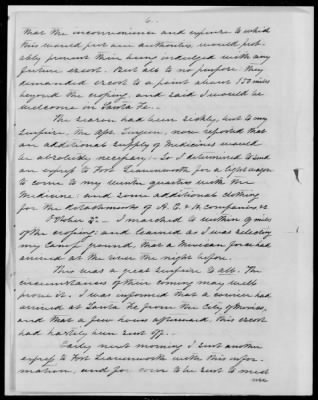 6.
that the inconvenience and expense to which
this would put our authorities, would prob-
ably prevent their being indulged with any
future escort. But all to no purpose: they
demanded escort to a point about 150 miles
beyond the crossing, and said I would be
welcome in Santa Fe.
The season had been sickly, but to my
surprise, the Asst. Surgeon, now reported that
an additional supply of Medicines would
be absolutely necessary: So I determined to send
an express to Fort Leavenworth for a light wagon
to come to my winter quarters with the
Medicine and some additional clothing
for the detachments of A. C. &
October 3d. — I marched to within 9 miles
of the crossing; and learned as I was selecting
my camp ground, that a Mexican force had
arrived at the river the night before.
This was a great surprise to all. The
circumstances of their coming may well
prove it. I was informed that a courier had
arrived at Santa Fe from the City of Mexico,
and that a few hours afterward, this escort
had hastily been sent off.
Early next morning I sent another
express to Fort Leavenworth with this infor-
mation, and for corn to be sent to meet
me